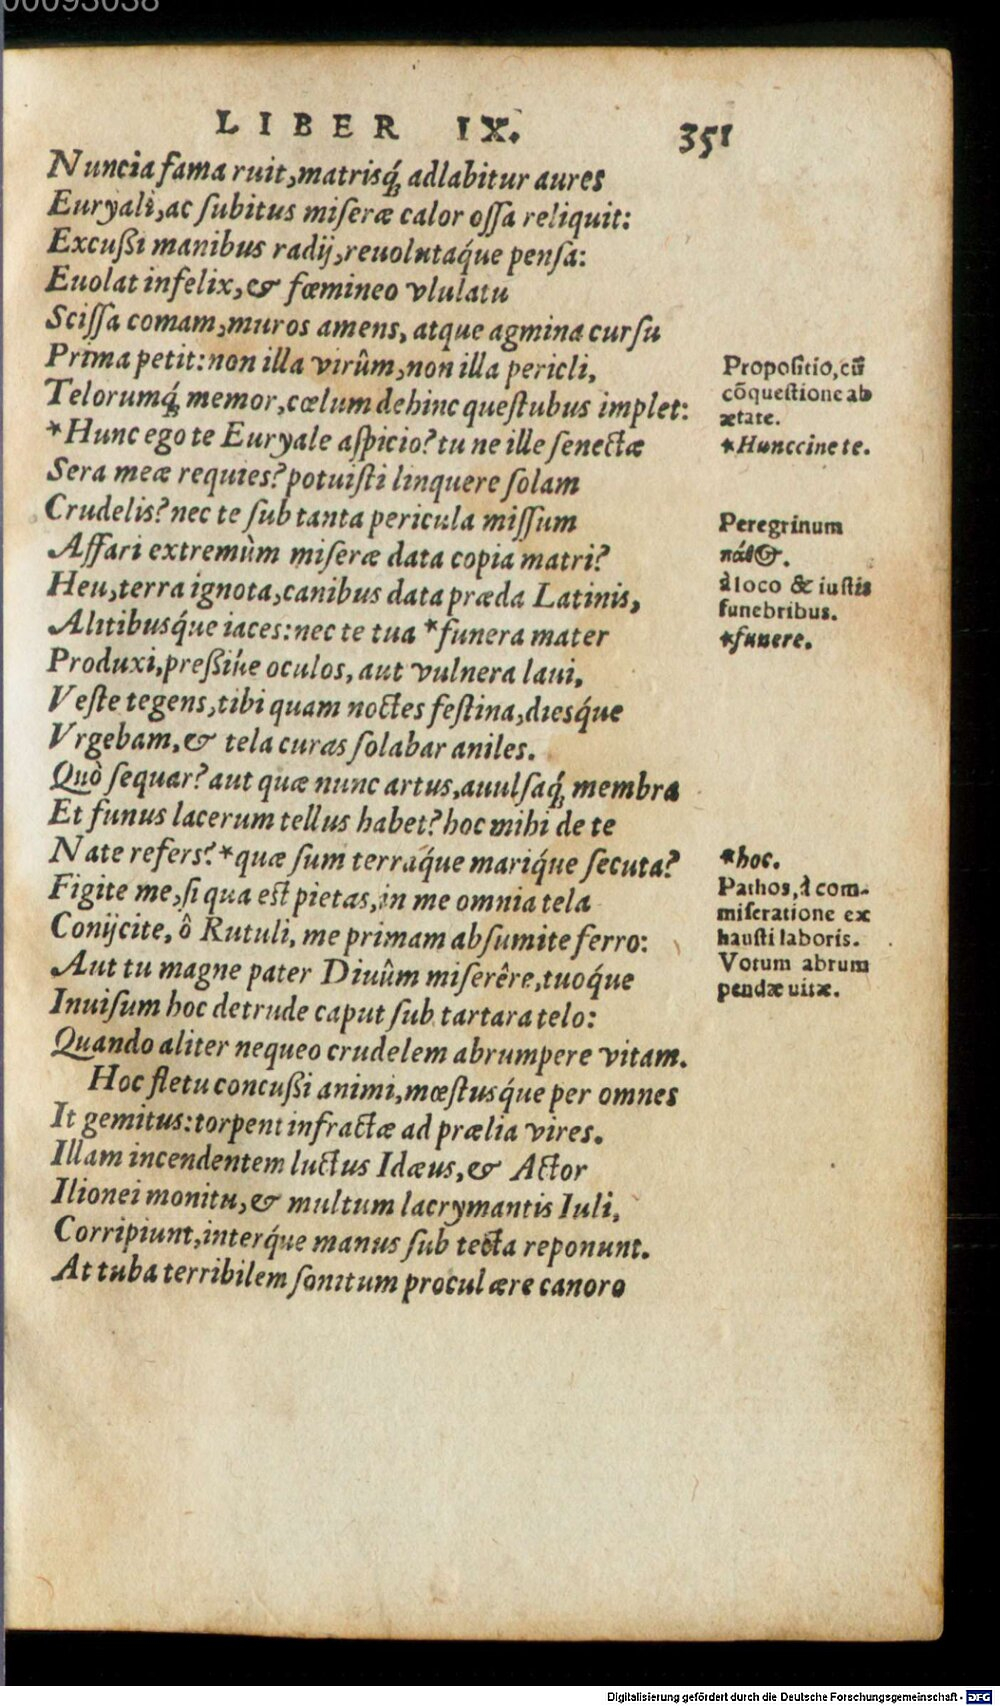 00093038
LIBER IX. 351
Nuncia fama ruit, matrisq́; adlabitur aures
Euryali, ac ſubitus miſeræ calor oſſa reliquit:
Excußi manibus radij, reuolutaq́ue penſa:
Euolat infelix, & fœmineo vlulatu
Sciſſa comam, muros amens, atque agmina curſu
Prima petit: non illa virûm, non illa pericli,
Telorumq́; memor, cœlum dehinc queſtubus implet:
*Hunc ego te Euryale aſpicio? tu ne ille ſenectæ
Sera meæ requies? potuiſti linquere ſolam
Crudelis? nec te ſub tanta pericula miſſum
Affari extremùm miſeræ data copia matri?
Heu, terra ignota, canibus data præda Latinis,
Alitibusq́ue iaces: nec te tua *funera mater
Produxi, preßiúe oculos, aut vulnera laui,
Veſte tegens, tibi quam noctes feſtina, diesq́ue
Vrgebam, & tela curas ſolabar aniles.
Quò ſequar? aut quæ nunc artus, auulſaq́; membra
Et funus lacerum tellus habet? hoc mihi de te
Nate refers? *quæ ſum terraq́ue mariq́ue ſecuta?
Figite me, ſi qua eſt pietas, in me omnia tela
Conijcite, ô Rutuli, me primam abſumite ferro:
Aut tu magne pater Diuûm miſerêre, tuoq́ue
Inuiſum hoc detrude caput ſub tartara telo:
Quando aliter nequeo crudelem abrumpere vitam.
Hoc fletu concußi animi, mœſtusq́ue per omnes
It gemitus: torpent infractæ ad prælia vires.
Illam incendentem luctus Idæus, & Actor
Ilionei monitu, & multum lacrymantis Iuli,
Corripiunt, interq́ue manus ſub tecta reponunt.
At tuba terribilem ſonitum procul ære canoro
Propoſitio, cũ
cõqueſtione ab
ætate.
*Hunccine te.
Peregrinum
à loco & iuſtis
funebribus.
*funere.
*hoc.
Pathos, à com-
miſeratione ex
hauſti laboris.
Votum abrum
pendæ uitæ.
Digitalisierung gefördert durch die Deutsche Forschungsgemeinschaft - DFG